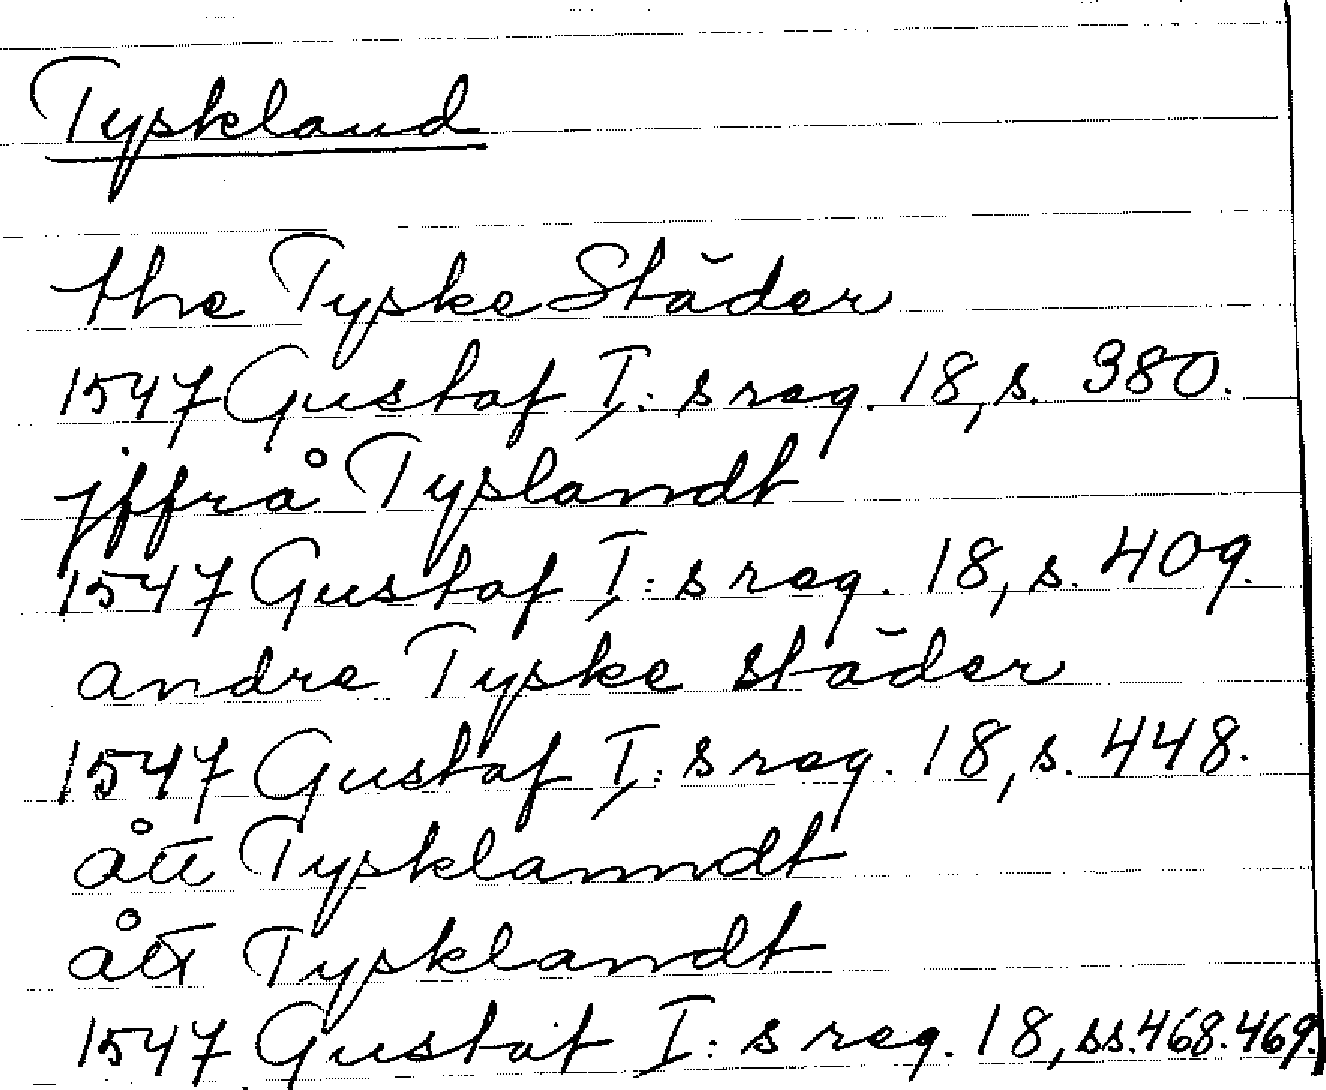 Tyskland
the Tyske Städer
1547 Gustaf I: s reg. 18, s. 380.
jffrå Tyslandt
1547 Gustaf I: s reg. 18, s. 409.
andre Tyske städer
1547 Gustaf I: s reg. 18, s. 448.
ått Tysklanndt
ått Tysklandt
1547 Gustaf I: s reg. 18, ss. 468. 469.